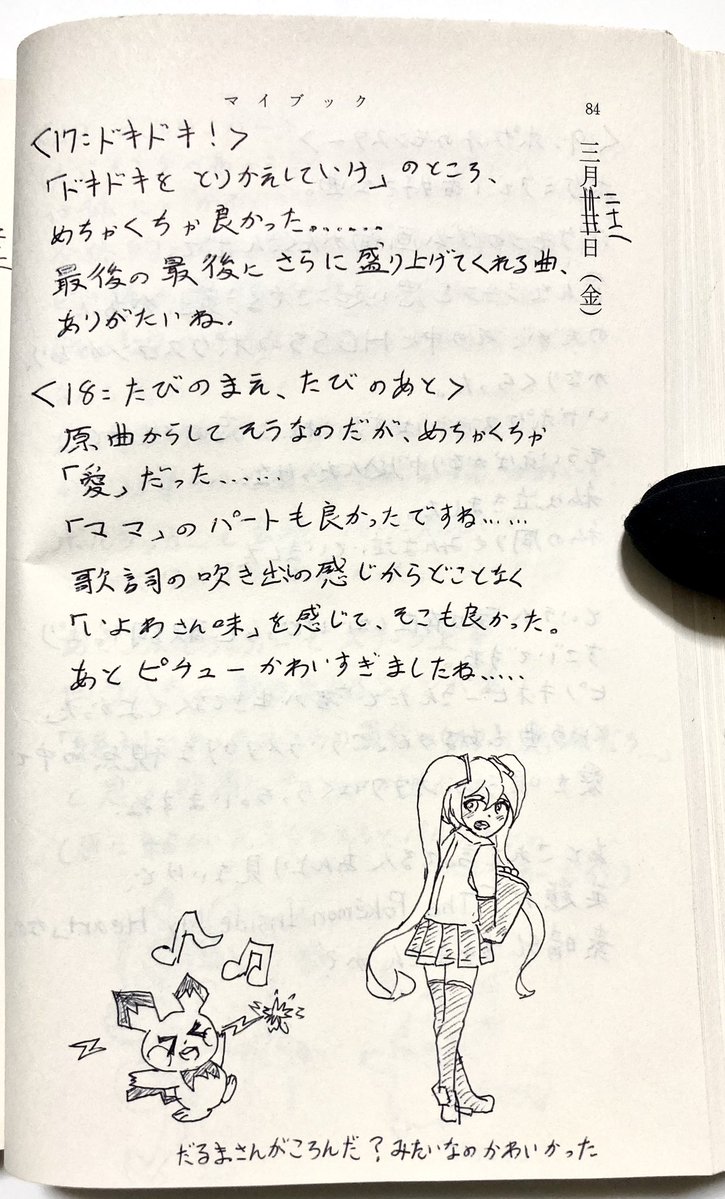 マイブック
84
三月二十八日(金)
<17:ドキドキ!>
「ドキドキを とりかえしていけ」のところ、
めちゃくちゃ良かった.......
最後の最後にさらに盛り上げてくれる曲、
ありがたいね.
<18:たびのまえ、たびのあと>
原曲からしてそうなのだが、めちゃくちゃ
「愛」だった......
「ママ」のパートも良かったですね......
歌詞の吹き出しの感じからどことなく
「いよわさん味」を感じて そこも良かった。
あとピチューかわいすぎましたね.....
だるまさんがころんだ?みたいなのかわいかった